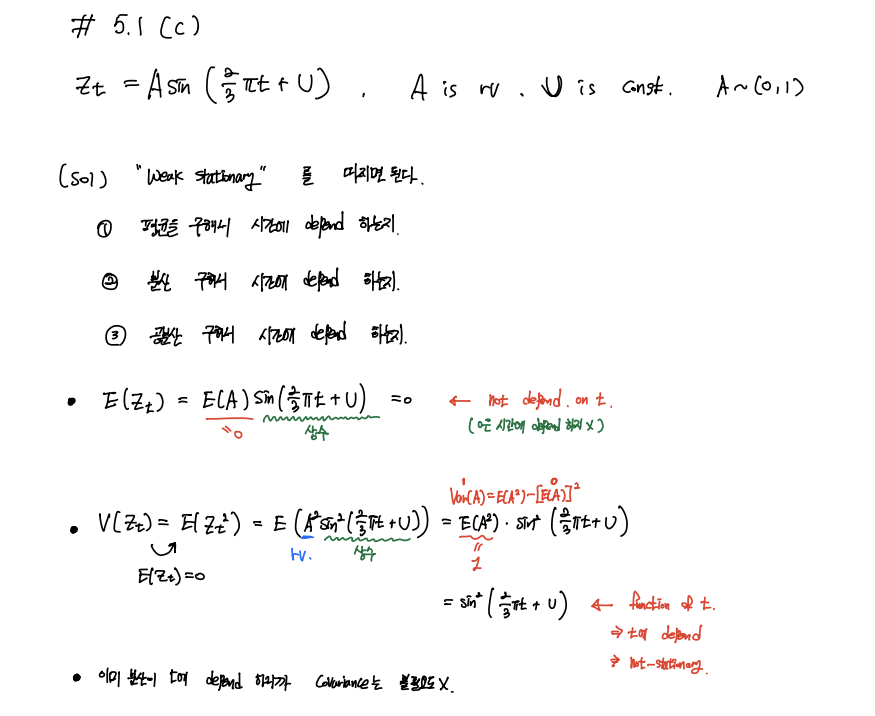 # 5.1 (c)
Zt = A sin (2/3 πt + U) , A is rv . U is const. A ~ (0, 1)
(Sol) "Weak stationary" 를 따지면 된다.
① 평균을 구해서 시간에 depend 하는지.
② 분산 구해서 시간에 depend 하는지.
③ 공분산 구해서 시간에 depend 하는지.
• E(Zt) = E(A) sin(2/3 πt + U) = 0 ← not depend. on t.
=0 상수 (0은 시간에 depend 하지 X)
Var(A) = E(A²) - [E(A)]²
1 0
• V(Zt) = E(Zt²) = E (A² sin²(2/3 πt + U)) = E(A²) · sin² (2/3 πt + U)
E(Zt) = 0 rv. 상수 = 1
= sin² (2/3 πt + U) ← function of t.
⇒ t에 depend
⇒ not-stationary.
• 이미 분산이 t에 depend 하니까 Covariance는 볼필요도 X.